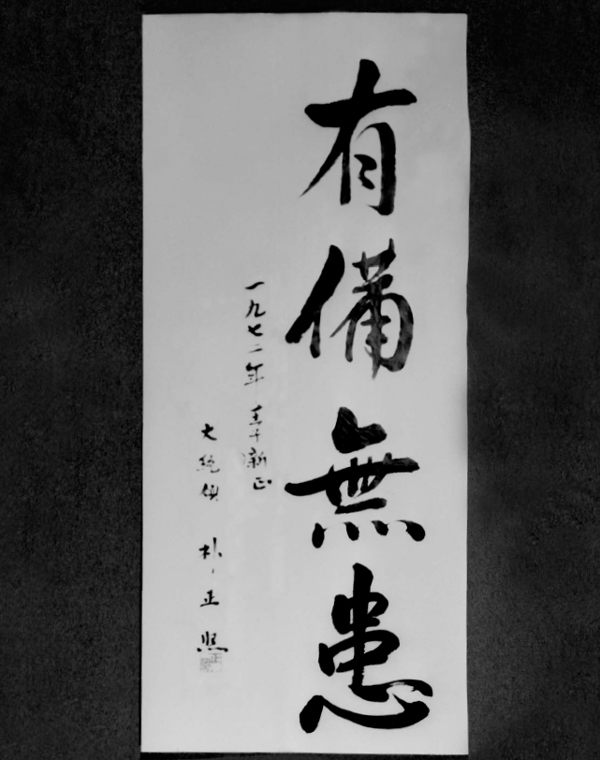 有備無患
一九七二年 壬子 新正
大統領 朴正熙